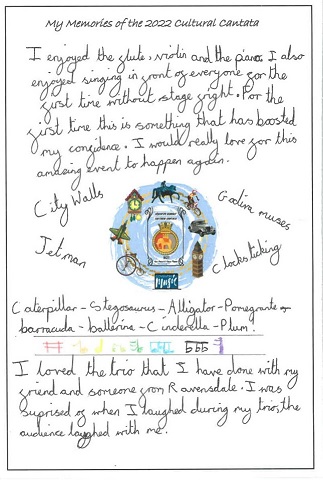 My Memories of the 2022 Cultural Cantata
I enjoyed the flute, violin and the piano. I also
enjoyed singing in front of everyone for the
first time without stage fright. For the
first time this is something that has boosted
my confidence. I would really love for this
amazing event to happen again.
City Walls
Godiva muses
Jetman
Clocks ticking
MUSIC
Caterpillar - Stegosaurus - Alligator - Pomegrante -
barracuda - ballerina - Cinderella - Plum!
I loved the trio that I have done with my
friend and someone from Ravensdale. I was
suprised of when I laughed during my trio, the
audience laughed with me.